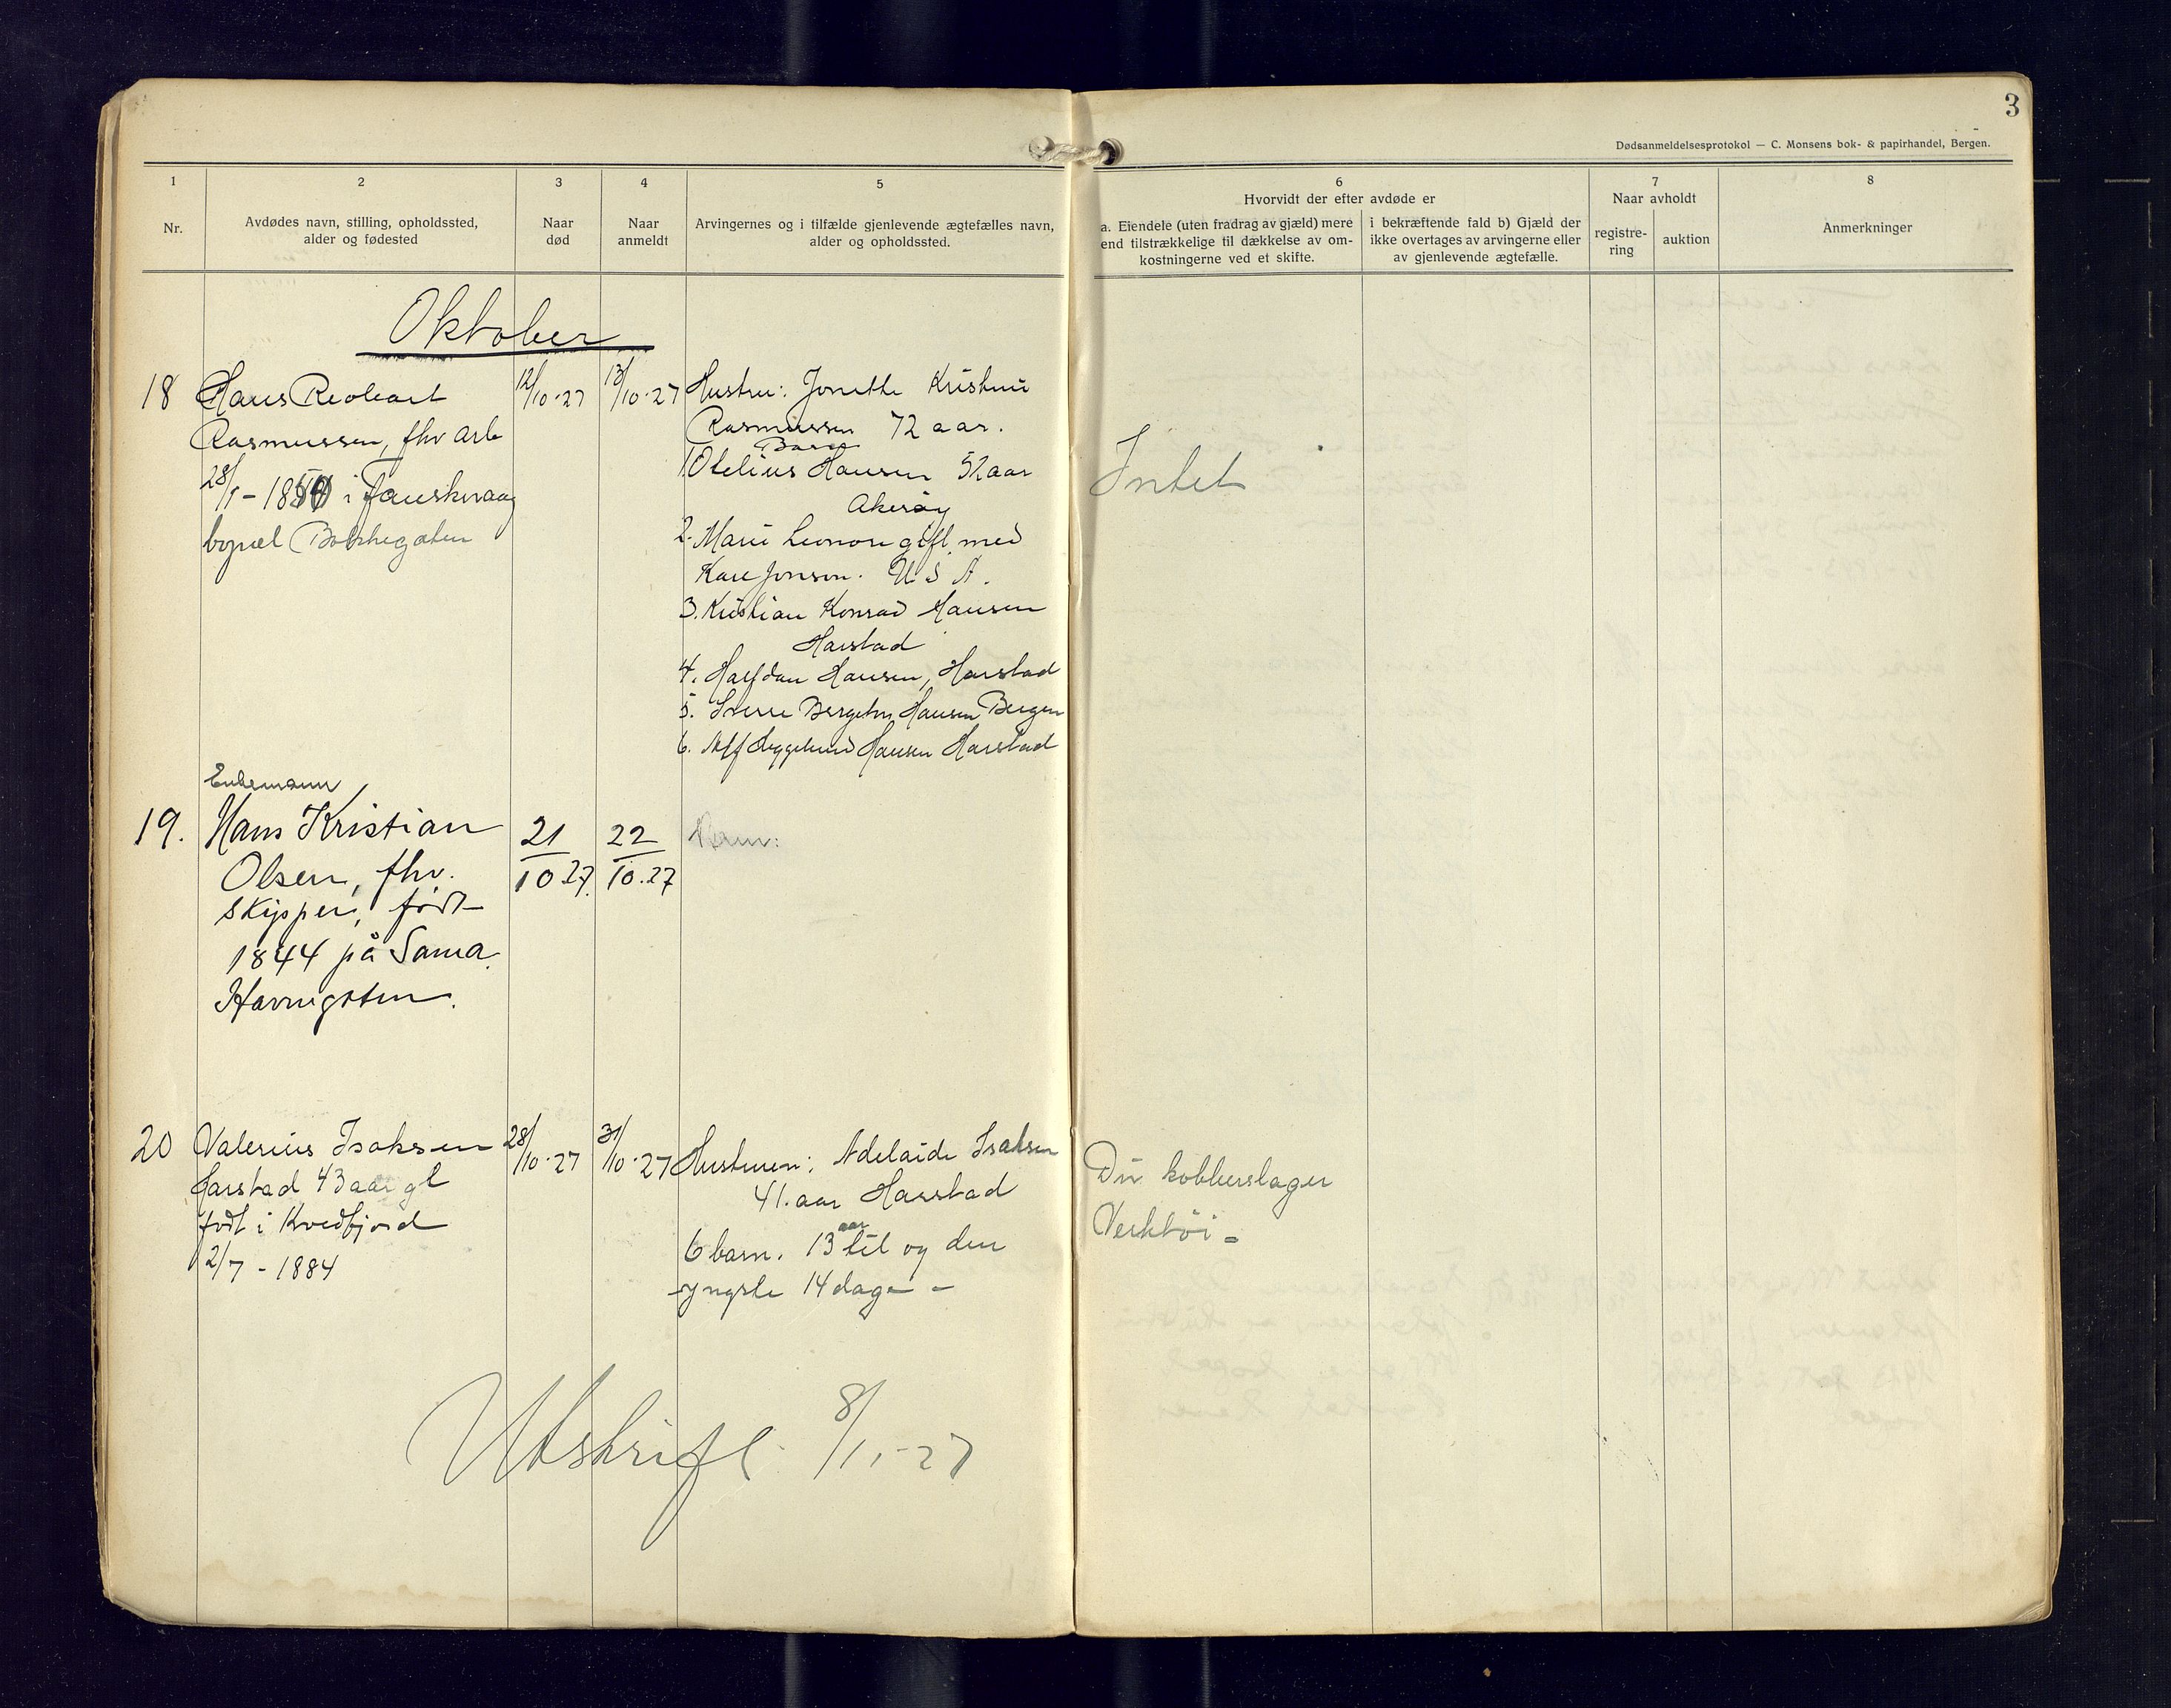 3
Dødsanmeldelsesprotokol — C. Monsens bok- & papirhandel, Bergen.
1
Nr.
2
Avdødes navn, stilling, opholdssted,
alder og fødested
3
Naar
død
4
Naar
anmeldt
5
Arvingernes og i tilfælde gjenlevende ægtefælles navn,
alder og opholdssted.
6
Hvorvidt der efter avdøde er
a. Eiendele (uten fradrag av gjæld) mere
end tilstrækkelige til dækkelse av om-
kostningerne ved et skifte.
i bekræftende fald b) Gjæld der
ikke overtages av arvingerne eller
av gjenlevende ægtefælle.
7
Naar avholdt
registre-
ring
auktion
8
Anmerkninger
Oktober
18
Hans
Rasmussen, fhv arb
28/ i
bopæl
12/10-27
13/10-27
Hustru: Jonette Kristine
Rasmussen 72 aar.
Barn
1 Otelius Hansen 52 aar
Akerøy
2. Marie Leonore gift med
Jonson. U S A.
3. Kristian Konrad Hansen
Harstad
4. Halfdan Hansen, Harstad
5. Sverre Hansen Bergen
6. Alf Heggelund Hansen Harstad
Intet
Enkemann
19.
Hans Kristian
Olsen, fhv.
skipper, født
1844 på Sama
21/10.27.
22/10.27
Barn:
20
Valerius Isaksen
Harstad 43 aar gl
født i Kvedfjord
2/7 - 1884
28/10-27
31/10-27
Hustruen: Adelaide Isaksen
41. aar Harstad
6 barn. 13 aar til og den
yngste 14 dage -
Div kobberslager
Verktöi -
Utskrift 8/11-27